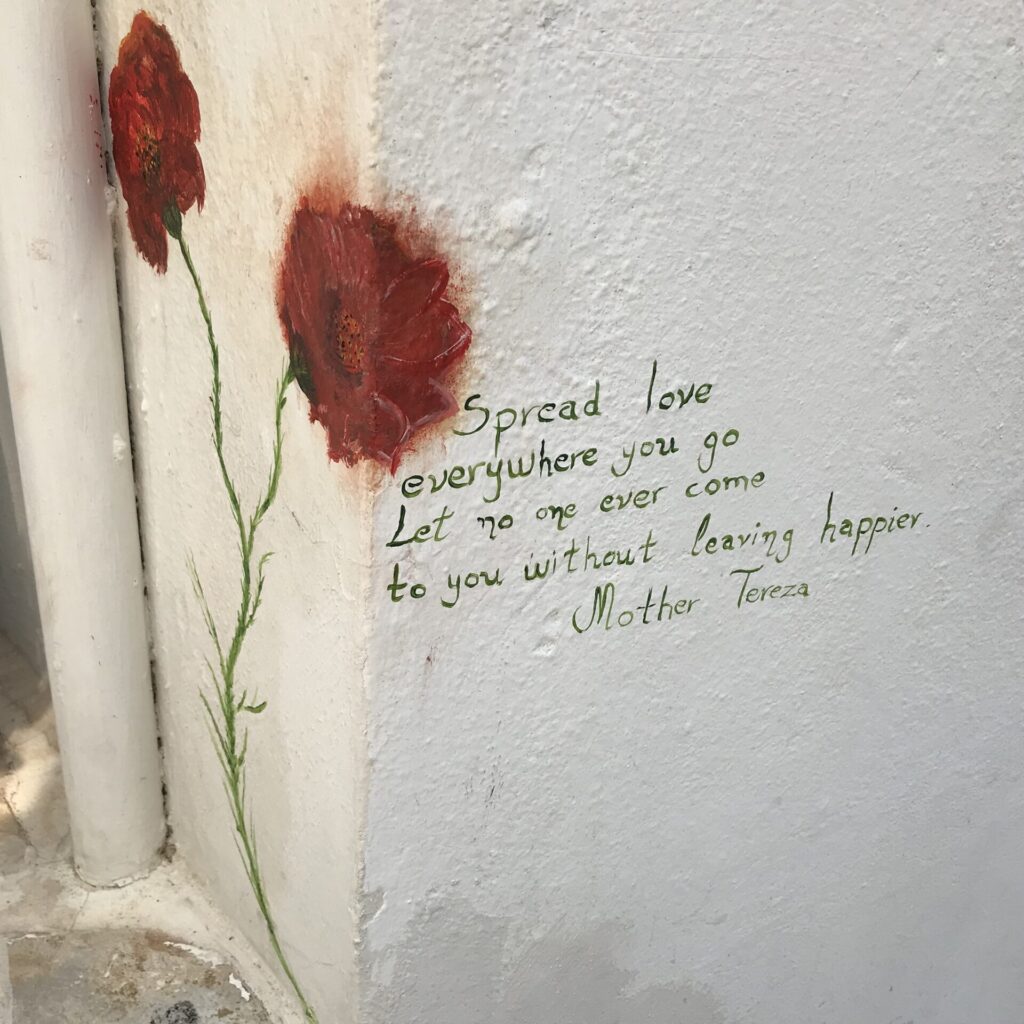 Spread love
everywhere you go
Let no one ever come
to you without leaving happier.
Mother Tereza